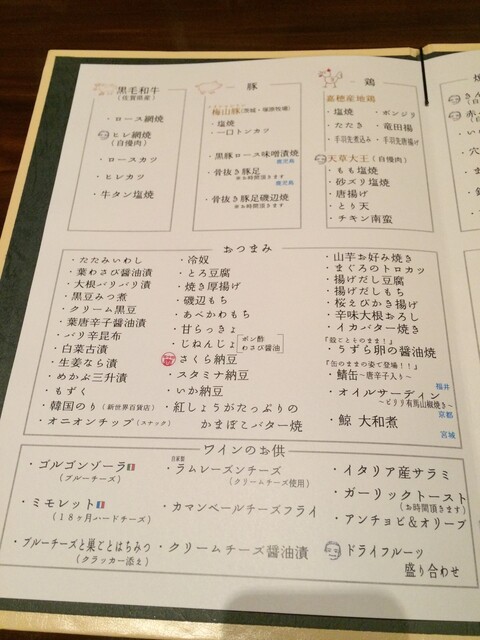 黒毛和牛
（佐賀県産）
・ロース網焼
・ヒレ網焼
（自優肉）
・ロースカツ
・ヒレカツ
・牛タン塩焼
豚
梅山豚（茨城・塚原牧場）
・塩焼
・一口トンカツ
・黒豚ロース味噌漬焼
鹿児島
・骨抜き豚足
※お時間頂きます
鹿児島
・骨抜き豚足磯辺焼
※お時間頂きます
鶏
嘉穂産地鶏
・塩焼 ・ボンジリ
・たたき ・竜田揚
・手羽先煮込み ・手羽先唐揚げ
天草大王（自優肉）
・もも塩焼
・砂ズリ塩焼
・唐揚げ
・とり天
・チキン南蛮
おつまみ
・たたみいわし
・葉わさび醤油漬
・大根バリバリ漬
・黒豆みつ煮
・クリーム黒豆
・葉唐辛子醤油漬
・バリ辛昆布
・白菜古漬
・生姜なら漬
・めかぶ三升漬
・もずく
・韓国のり（新世界百貨店）
・オニオンチップ（スナック）
・冷奴
・とろ豆腐
・焼き厚揚げ
・磯辺もち
・あべかわもち
・甘らっきょ
・じねんじょ
ポン酢
わさび醤油
・さくら納豆
・スタミナ納豆
・いか納豆
・紅しょうがたっぷりの
かまぼこバター焼
・山芋お好み焼き
・まぐろのトロカツ
・揚げだし豆腐
・揚げだしもち
・桜えびかき揚げ
・辛味大根おろし
・イカバター焼き
『殻ごとそのまま！』
・うずら卵の醤油焼
『缶のままの姿で登場！！』
・鯖缶〜唐辛子入り〜
福井
・オイルサーディン
〜ピリリ有馬山椒焼き〜
京都
・鯨 大和煮
宮城
ワインのお供
・ゴルゴンゾーラ
（ブルーチーズ）
・ミモレット
（１８ヶ月ハードチーズ）
・ブルーチーズと巣ごとはちみつ
（クラッカー添え）
自家製
・ラムレーズンチーズ
（クリームチーズ使用）
・カマンベールチーズフライ
・クリームチーズ醤油漬
・イタリア産サラミ
・ガーリックトースト
（お時間頂きます）
・アンチョビ＆オリーブ
・ドライフルーツ
盛り合わせ